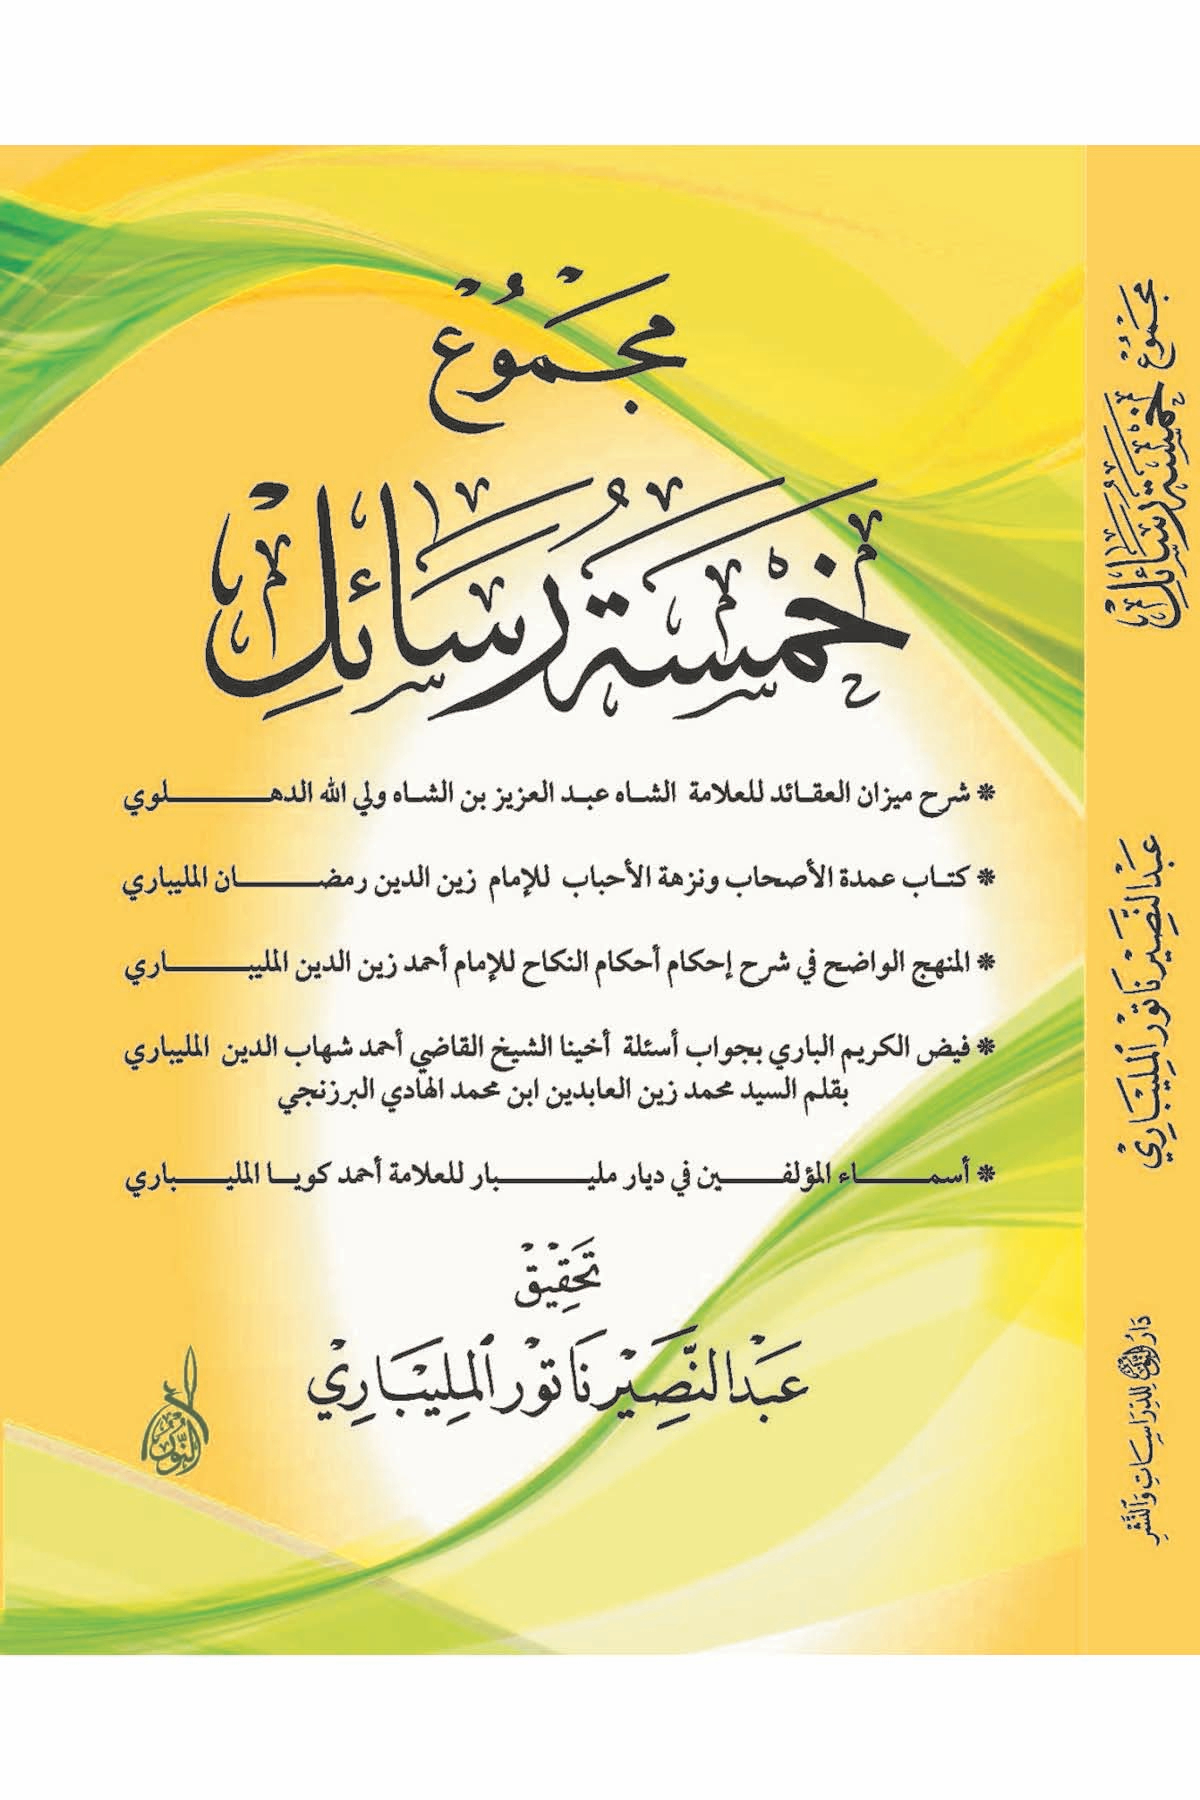 مجموع
خمسة رسائل
* شرح ميزان العقائد للعلامة الشاه عبد العزيز بن الشاه ولي الله الدهلوي
* كتاب عمدة الأصحاب ونزهة الأحباب للإمام زين الدين رمضان المليباري
* المنهج الواضح في شرح إحكام أحكام النكاح للإمام أحمد زين الدين المليباري
* فيض الكريم الباري بجواب أسئلة أخينا الشيخ القاضي أحمد شهاب الدين المليباري
بقلم السيد محمد زين العابدين ابن محمد الهادي البرزنجي
* أسماء المؤلفين في ديار مليبار للعلامة أحمد كويا المليباري
تحقيق
عبد النصير ناتور المليباري
النور
مجموع خمسة رسائل
عبد النصير ناتور المليباري
دار النور للدراسات والنشر